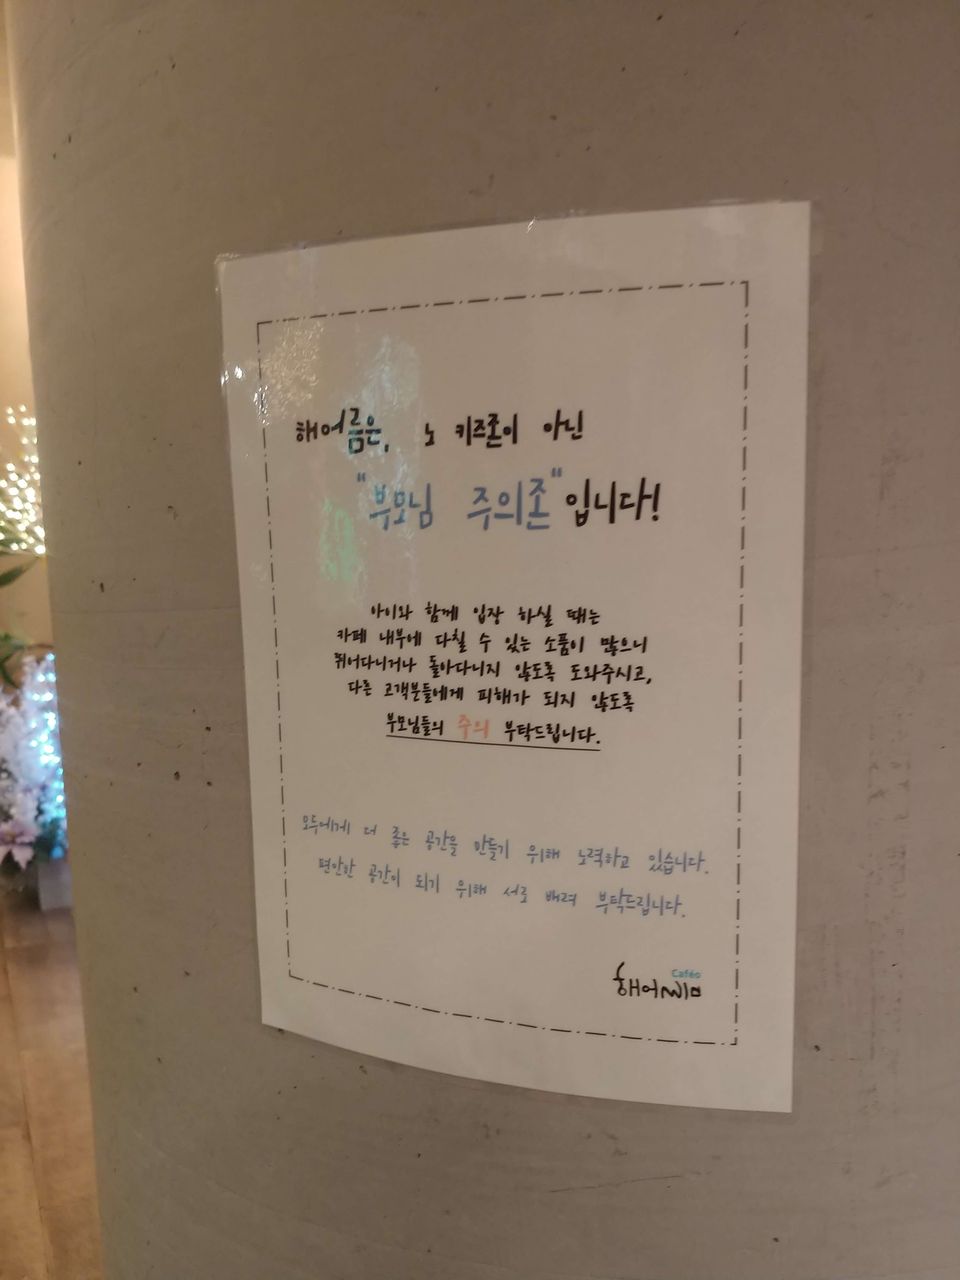 해어름은, 노 키즈존이 아닌
"부모님 주의존"입니다!
아이와 함께 입장 하실 때는
카페 내부에 다칠 수 있는 소품이 많으니
뛰어다니거나 돌아다니지 않도록 도와주시고,
다른 고객분들에게 피해가 되지 않도록
부모님들의 주의 부탁드립니다.
모두에게 더 좋은 공간을 만들기 위해 노력하고 있습니다.
편안한 공간이 되기 위해 서로 배려 부탁드립니다.